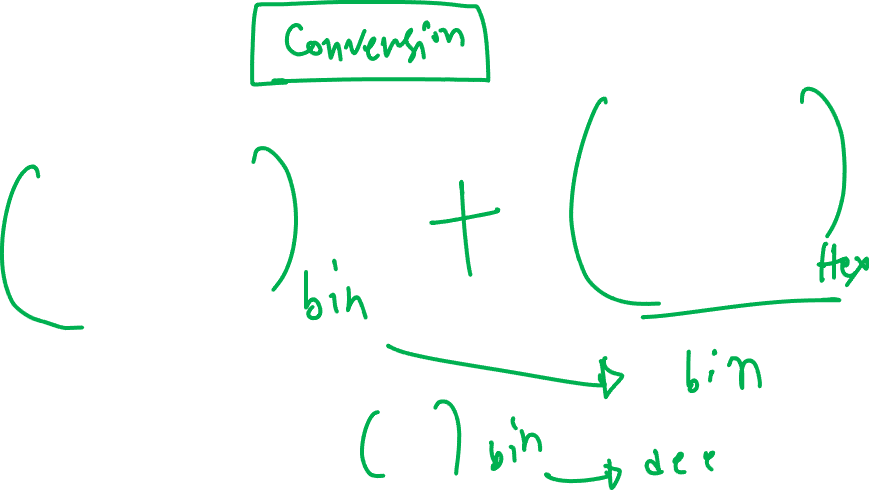 Conversion
( )bin + ( )Hex
bin
( )bin → dec